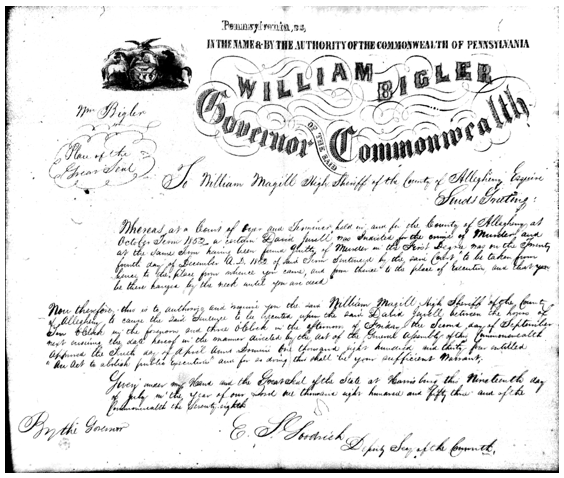 Pennsylvania, ss,
IN THE NAME & BY THE AUTHORITY OF THE COMMONWEALTH OF PENNSYLVANIA
WILLIAM BIGLER
Governor OF THE SAID Commonwealth
Wm Bigler
Place of the
Great Seal
To William Magill High Sheriff of the County of Allegheny Esquire
Sends Greeting:
Whereas, at a Court of Oyer and Terminer, held in and for the County of Allegheny at
October Term 1852 a certain David Jewell was Indicted for the crime of Murder, and
at the same Term having been found guilty of Murder in the First Degree was on the Twenty
fourth day of December A.D. 1852 of said Term Sentenced by the said Court to be taken from
hence to the place from whence you came, and from thence to the place of execution and that you
be there hanged by the neck until you are dead
Now therefore, this is to authorize and require you the said William Magill High Sheriff of the County
of Allegheny to cause the said Sentence to be executed upon the said David Jewell between the hours of
Ten OClock in the forenoon and three OClock in the afternoon of Friday the Second day of September
next ensuing the date hereof in the manner directed by the act of the General Assembly of the Commonwealth
approved the Tenth day of April Anno Domini One thousand eight hundred and thirty four entitled
"An Act to abolish public executions" and for so doing this shall be your sufficient Warrant.
Given under my Hand and the Great Seal of the State at Harrisburg this Nineteenth day
of July in the year of our Lord one thousand eight hundred and fifty three and of the
Commonwealth the Seventy eighth
By the Governor
E. S. Goodrich
Deputy Secy of the Commwth.